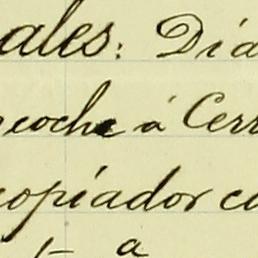 ales: Día
coche á Cerr
copiador co